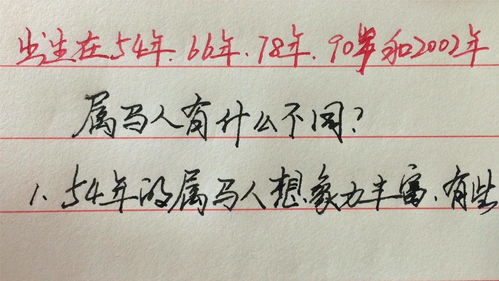 出生在54年.66年.78年.90年和2002年
属马人有什么不同?
1.54年的属马人想象力丰富.有些